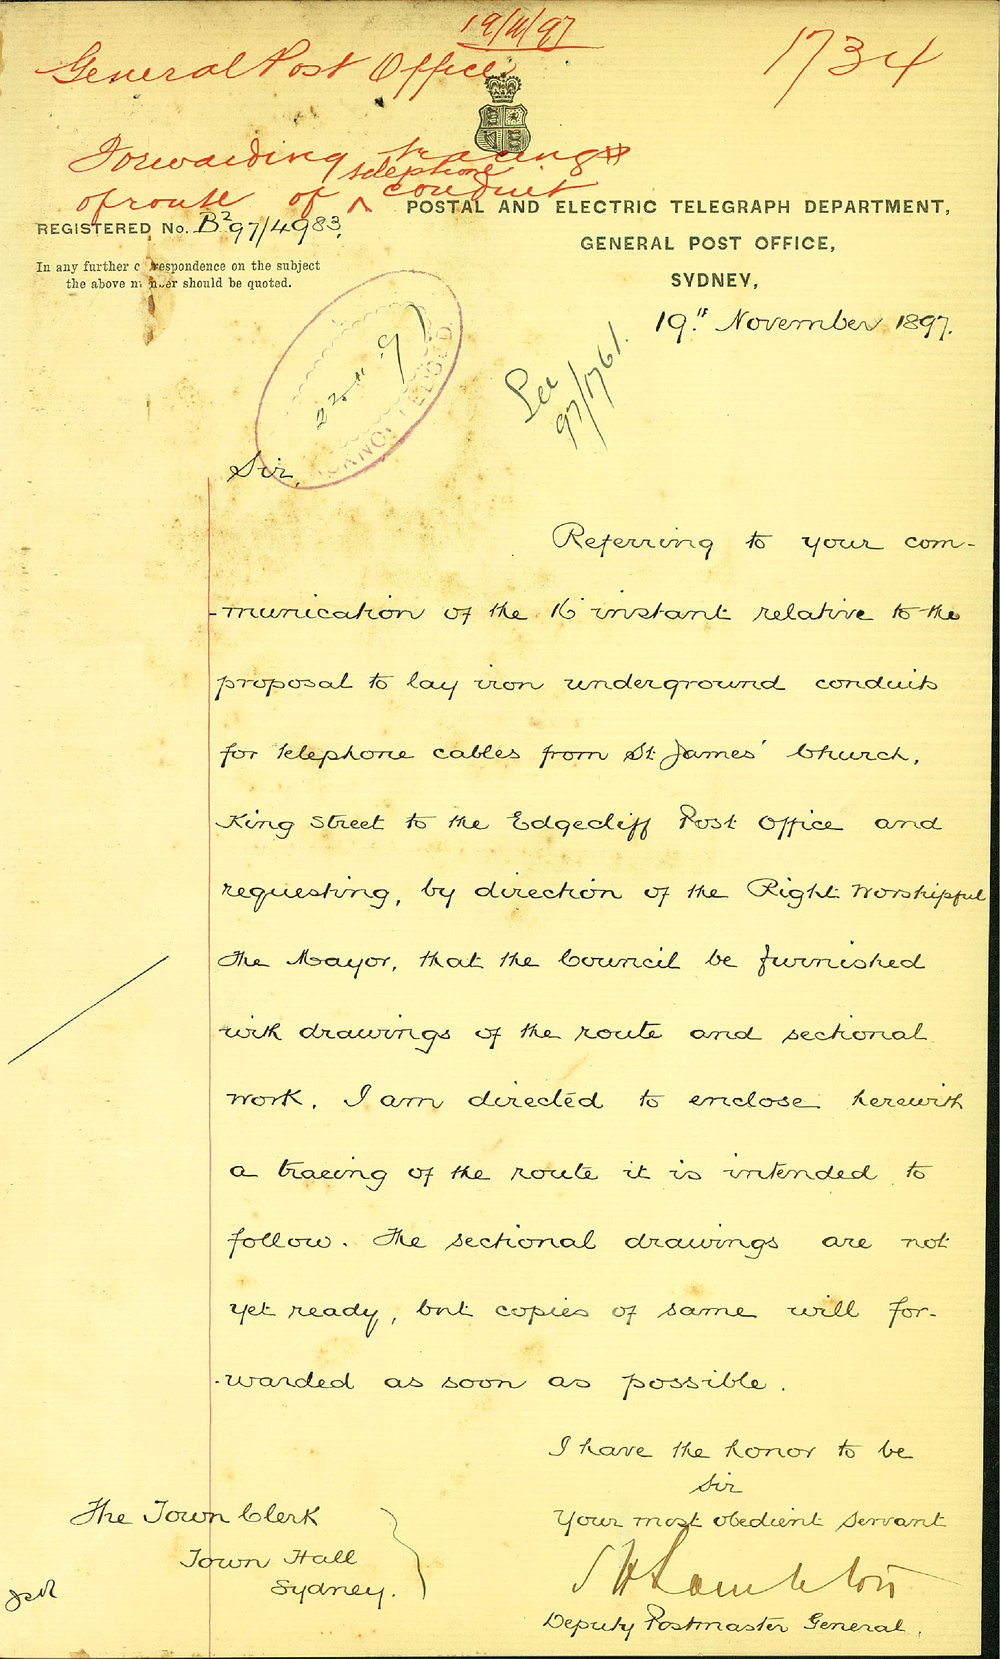 19/11/97
General Post Office
1734
Forwarding tracing
telephone
of route of ^ conduit
POSTAL AND ELECTRIC TELEGRAPH DEPARTMENT,
REGISTERED No. B² 97/4983.
GENERAL POST OFFICE,
In any further correspondence on the subject
the above number should be quoted.
SYDNEY,
19" November 1897.
22.11.97
ACKNOWLEDGED.
See
97/1761.
Sir,
Referring to your com-
-munication of the 16 instant relative to the
proposal to lay iron underground conduits
for telephone cables from St. James' Church,
King Street to the Edgecliff Post Office and
requesting, by direction of the Right Worshipful
The Mayor, that the Council be furnished
with drawings of the route and sectional
work, I am directed to enclose herewith
a tracing of the route it is intended to
follow. The sectional drawings are not
yet ready, but copies of same will for-
-warded as soon as possible.
I have the honor to be
Sir
Your most obedient servant
The Town Clerk
Town Hall
Sydney.
S H Lambton
Deputy Postmaster General.